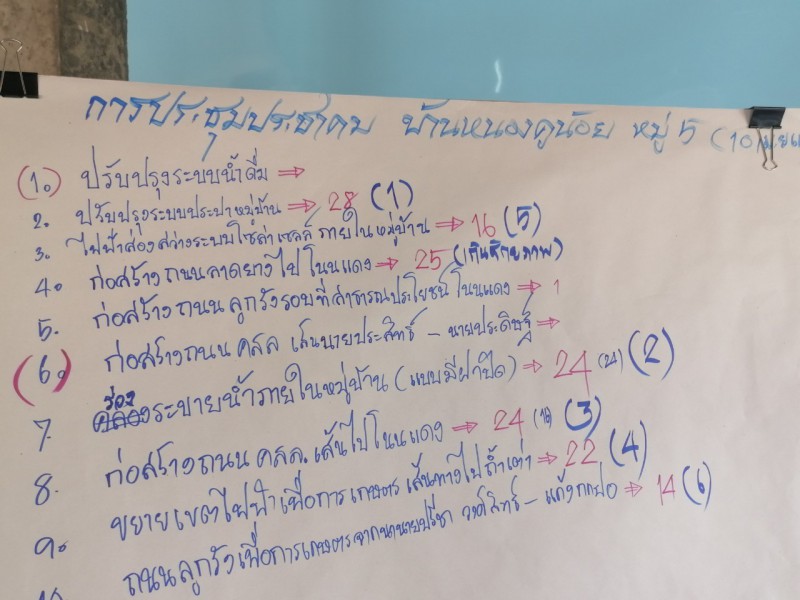 การประชุมประชาคม บ้านหนองคูน้อย หมู่ 5 (10
(1.) ปรับปรุงระบบน้ำดื่ม ⇒
2. ปรับปรุงระบบประปาหมู่บ้าน ⇒ 28 (1)
3. ไฟฟ้าส่องสว่างระบบโซล่าเซลล์ ภายในหมู่บ้าน ⇒ 16 (5)
4. ก่อสร้างถนนลาดยางไปโนนแดง ⇒ 25 (เกินศักยภาพ)
5. ก่อสร้างถนนลูกรังรอบที่สาธารณประโยชน์โนนแดง ⇒ 1
(6.) ก่อสร้างถนน คสล เส้นนายประสิทธิ์ - นายประดิษฐ์ ⇒
7. ร่องระบายน้ำภายในหมู่บ้าน (แบบมีฝาปิด) ⇒ 24 (21) (2)
8. ก่อสร้างถนน คสล. เส้นไปโนนแดง ⇒ 24 (18) (3)
9. ขยายเขตไฟฟ้าเพื่อการเกษตร เส้นทางไปถ้ำเต่า ⇒ 22 (4)
10 ถนนลูกรังเพื่อการเกษตรจากนานายปรีชา วงศ์สิทธิ์ - ⇒ 14 (6)